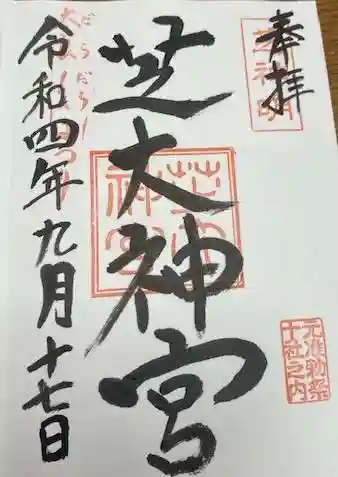 奉拝
芝神明
元准勅祭
十社之内
芝大神宮
芝大
神宮
だらだら
令和四年九月十七日